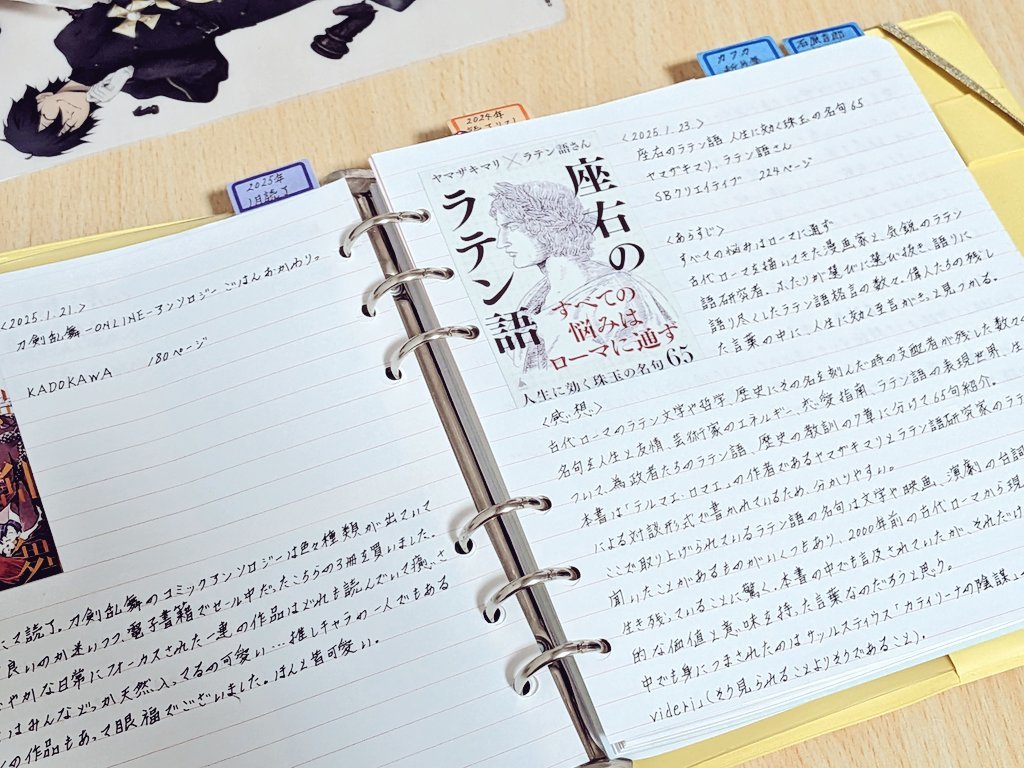 2025年
1月読了
2024年
カフカ
石原吉郎
<2025.1.21.>
刀剣乱舞-ONLINE-アンソロジー ごはんおかわり。
KADOKAWA 180ページ
て読了。刀剣乱舞のコミックアンソロジーは色々種類が出ていて
良いのか迷いつつ、電子書籍でセール中だったこちらの3冊を買いました。
やかな日常にフォーカスされた一連の作品はどれも読んでいて癒やさ
はみんなどっか天然入ってるの可愛い…推しキャラの一人でもある
の作品もあって眼福でございました。ほんと皆可愛い。
ヤマザキマリ×ラテン語さん
座右の
ラテン語
すべての
悩みは
ローマに通ず
人生に効く珠玉の名句65
<2025.1.23.>
座右のラテン語 人生に効く珠玉の名句65
ヤマザキマリ、ラテン語さん
SBクリエイティブ 224ページ
<あらすじ>
すべての悩みはローマに通ず
古代ローマを描いてきた漫画家と、気鋭のラテン
語研究者。ふたりが選びに選び抜き、語りに
語り尽くしたラテン語格言の数々。偉人たちの残し
た言葉の中に、人生に効く至言がきっと見つかる。
<感想>
古代ローマのラテン文学や哲学、歴史にその名を刻んだ時の支配者が残した数々の
名句を人生と友情、芸術家のエネルギー、恋愛指南、ラテン語の表現世界、生
ついて、為政者たちのラテン語、歴史の教訓の7章に分けて65句紹介。
本書は「テルマエ・ロマエ」の作者であるヤマザキマリとラテン語研究家のラテ
による対談形式で書かれているため、分かりやすい。
ここで取り上げられているラテン語の名句は文学や映画、演劇の台詞
聞いたことがあるものがいくつもあり、2000年前の古代ローマから現
生き残っていることに驚く。本書の中でも言及されていたが、それだけ
的な価値と意味を持った言葉なのだろうと思う。
中でも身につまされたのはサッルスティウス「カティリーナの陰謀」
videri」(そう見られることよりそうであること)。